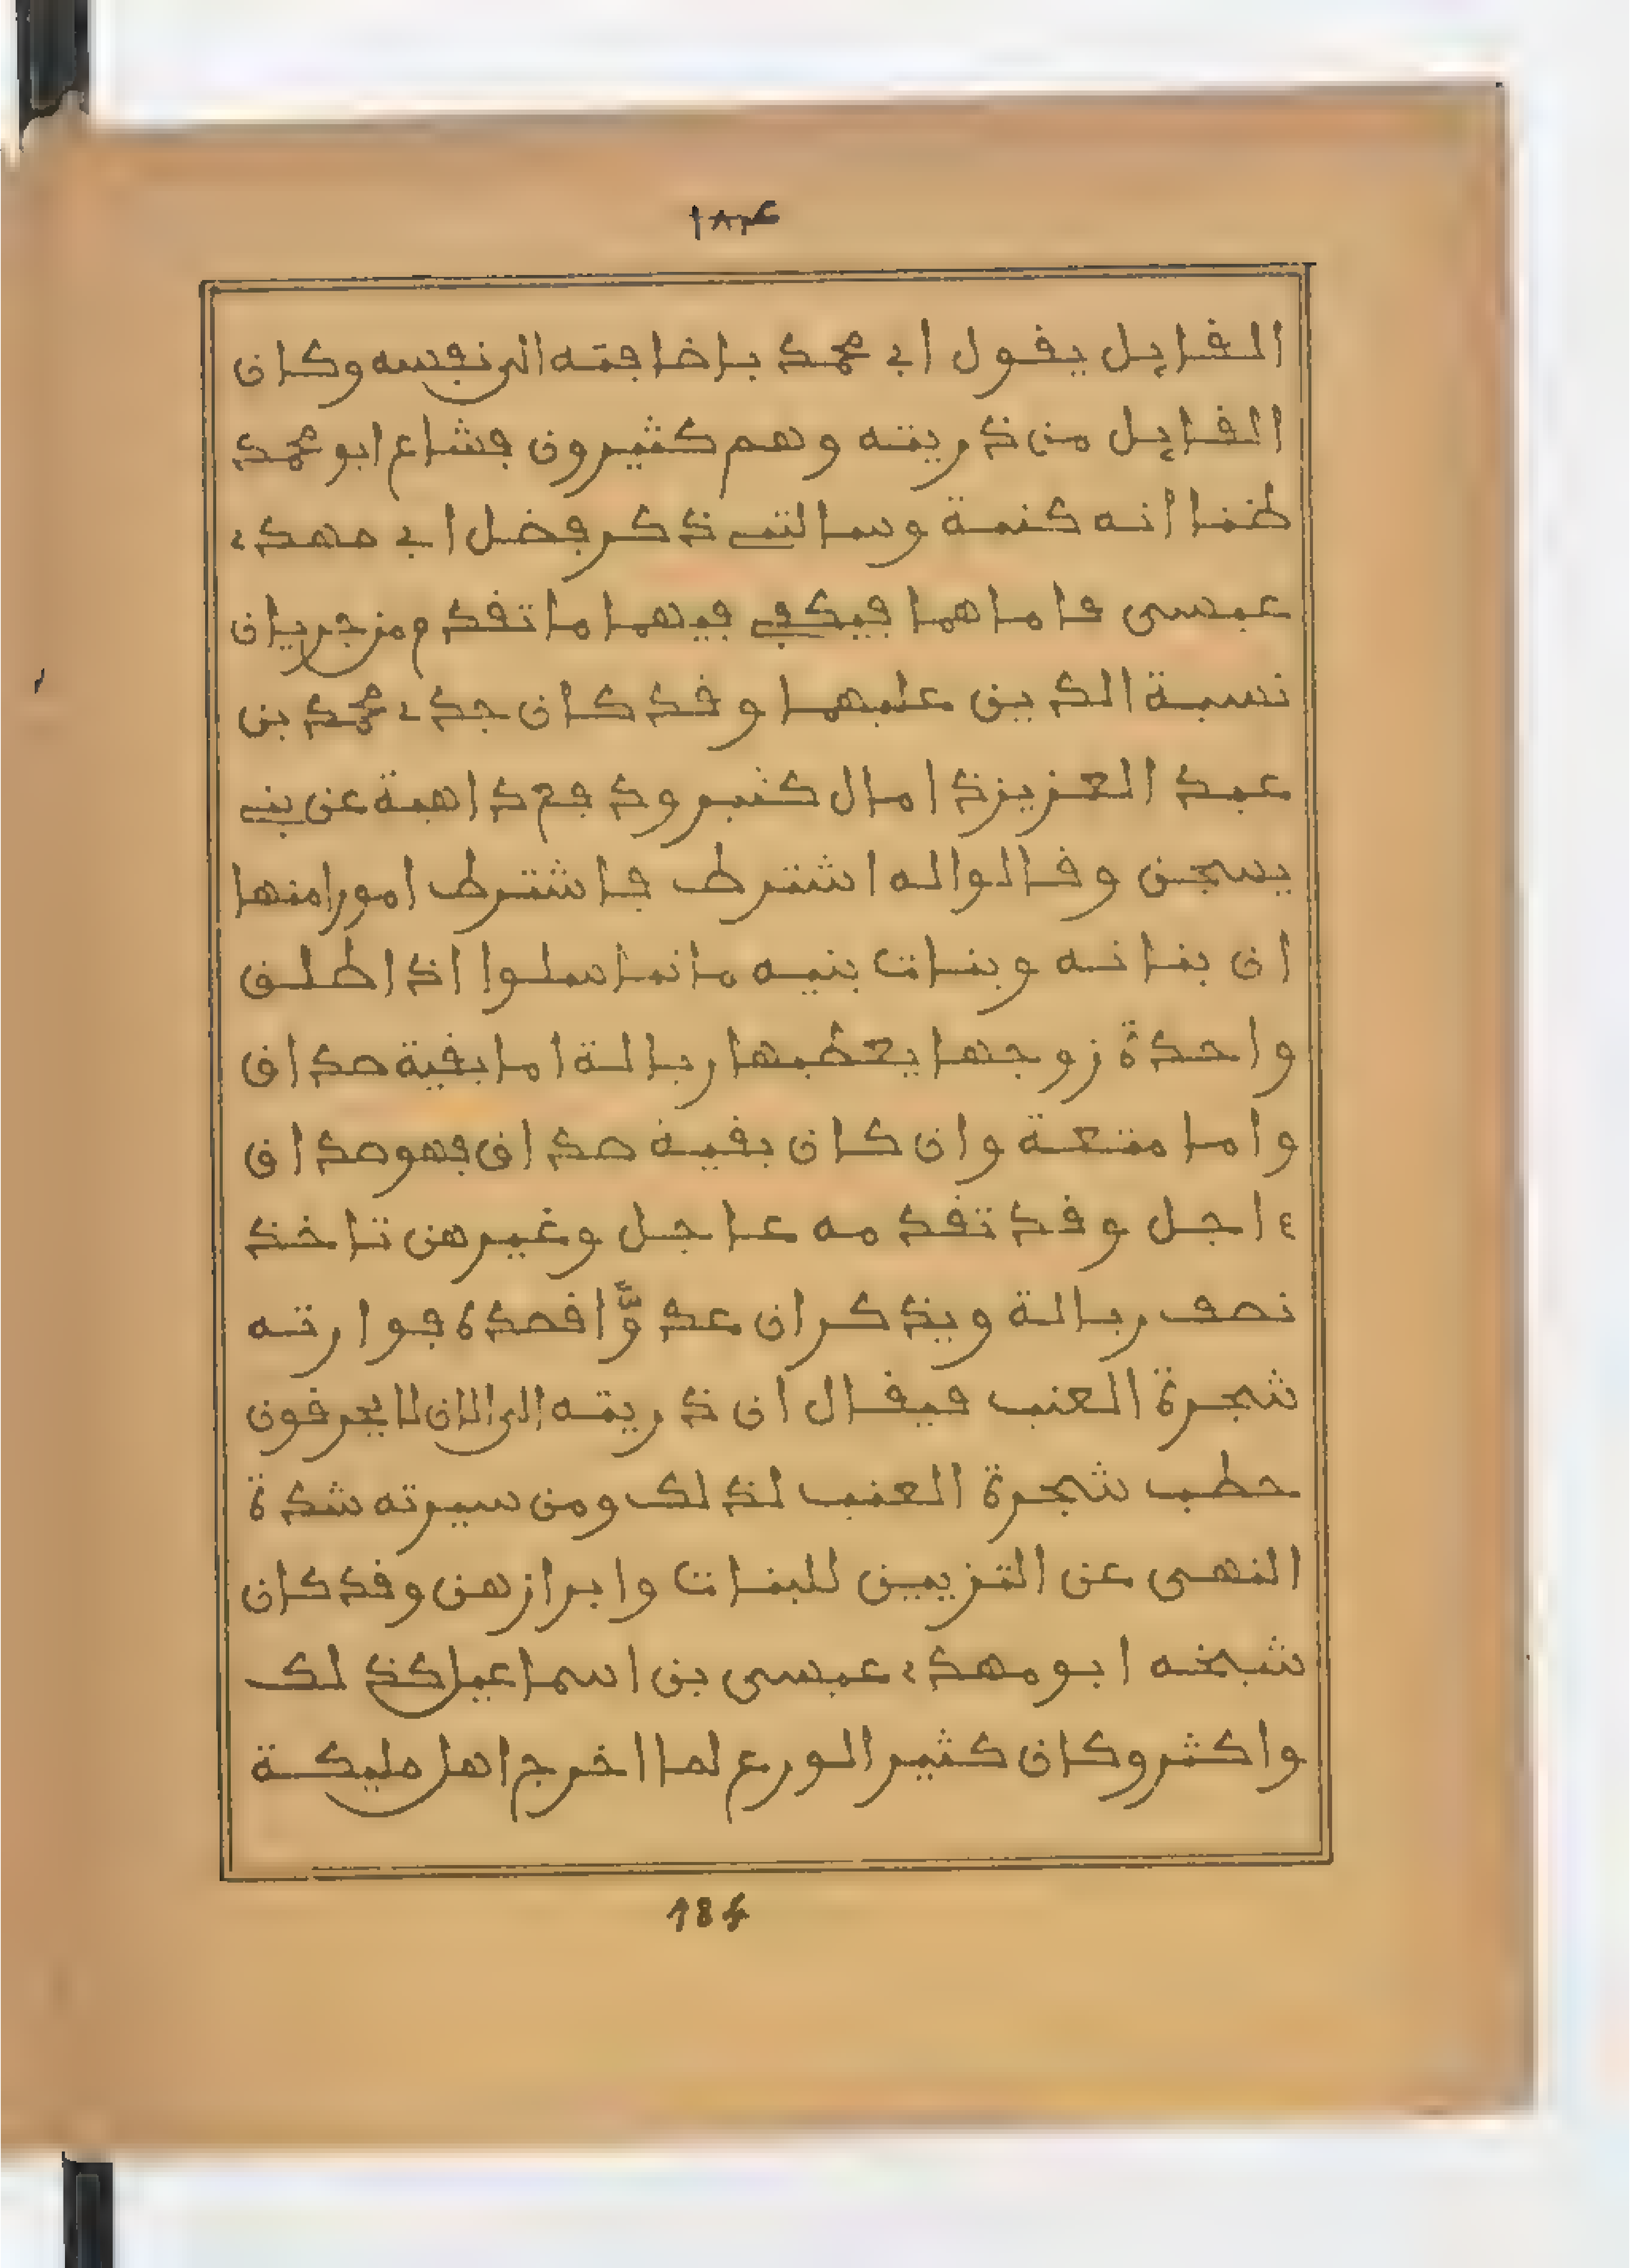 ١٨٤
القايل يقول ابي محمد باضافته الى نفسه وكان
القايل من ذريته وهم كثيرون فشاع ابو محمد
ظنا انه كنية وسالتني ذكر فضل ابي مهدي
عيسى فاما هما فيكفي فيهما ما تقدم من جريان
نسبة الدين عليهما وقد كان جدي محمد بن
عبد العزيز ذا مال كثير ودفع داهية عن بني
يسجن وقالوا له اشترط فاشترط امورا منها
ان بناته وبنات بنيه ما تناسلوا اذا طلق
واحدة زوجها يعطيها ريالة اما بقية صداق
واما متعة وان كان بقية صداق فهو صداق
ءاجل وقد تقدمه عاجل وغيرهن تاخذ
نصف ريالة ويذكر ان عدوًّا قصده فوارته
شجرة العنب فيقال ان ذريته الى الان لا يحرقون
حطب شجرة العنب لذلك ومن سيرته شدة
النهي عن التزيين للبنات وابرازهن وقد كان
شيخه ابو مهدي عيسى بن اسماعيل كذلك
واكثر وكان كثير الورع لما اخرج اهل مليكة
184